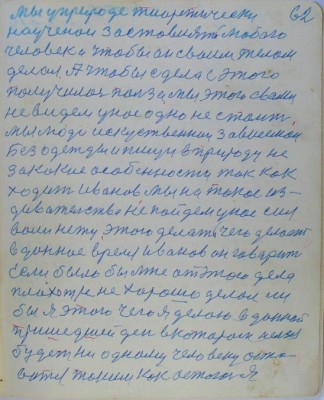 62
Мы уприроде тиоритически
научеnои заставлять любого
человека чтобы он своим телом
делал А чтобы сделал с этого
получилас польза мы этого своми
невидем уноса одно не стоит
мы люди искуственная зависемая
Без одежды и пищи в природу не
закакие особенности так как
ходит иванов мы на такое из-
дивательство не пойдем унас сил
воли нету этого делать чего делает
вданное время иванов он говорит
Если было бы мне отэтого дела
плохо не хорошо делал ли
бы я этого чего я делаю вданной
пришедшей ден вкотором нельзя
будет ни одному человеку оста-
ватся таким как остался Я